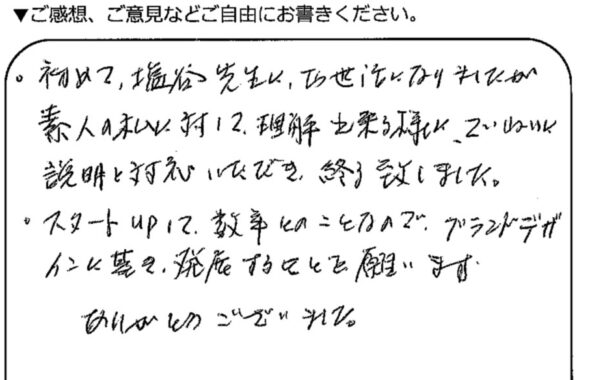 ▼ご感想、ご意見などご自由にお書きください。
。初めて、塩谷先生に、お世話になりましたが
素人の私に対して、理解出来る様に、ていねいに
説明と対応いただき、終了致しました。
。スタートupして、数年とのことなので、ブランドデザ
インに基き、発展することを願います
ありがとうございました。